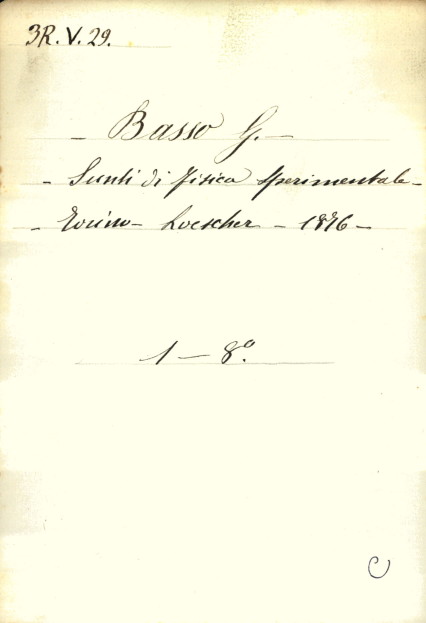 3R. V. 29.
- Basso G. -
- Sunti di fisica sperimentale -
- Torino - Loescher - 1876 -
1 - 8º.
C